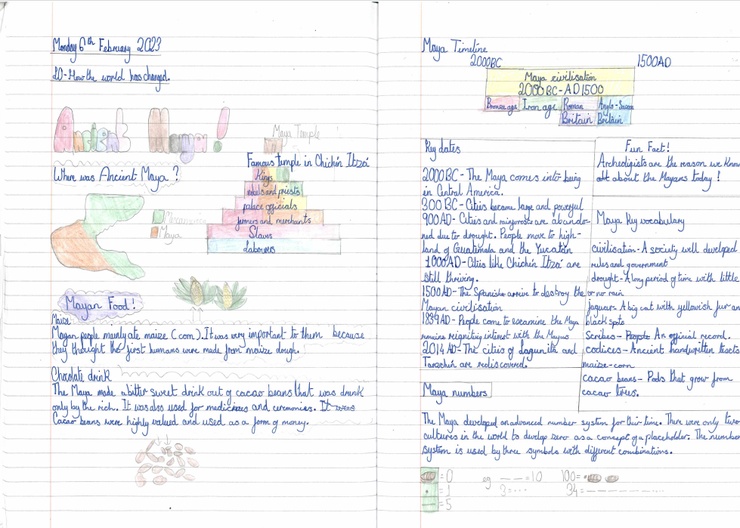 Monday 6th February 2023
LO-How the world has changed.
Ancient Maya!
Maya Temple
Where was Ancient Maya?
Famous temple in Chichén Itzá
Kings
nobles and priests
palace officials
farmers and merchants
Slaves
labourers
Mesoamerica
Maya
Mayan Food!
Maize
Mayan people mainly ate maize (corn). It was very important to them because
they thought the first humans were made from maize dough!
Chocolate drink
The Maya made a bitter sweet drink out of cacao beans that was drank
only by the rich. It was also used for medicines and ceremonies. It was
Cacao beans were highly valued and used as a form of money.
Maya Timeline
2000BC
1500AD
Maya civilisation
2000BC-AD1500
Bronze age
Iron age
Roman
Britain
Anglo-Saxon
Britain
Key dates
2000BC-The Maya comes into being
in Central America.
300BC-Cities become large and powerful
900AD-Cities and are abando-
ned due to drought. People move to high-
land of Guatemala and the Yucatán
1000AD-Cities like Chichén Itzá are
still thriving.
1500AD-The Spanish arrive to destroy the
Mayan civilisation
1839AD-People come to examine the Maya
remains reigniting interest with the Mayas
2014AD-The cities of and
are rediscovered.
Fun Fact!
are the reason we know
about the Mayans today!
Maya Key vocabulary
civilisation-A society well developed
rules and government
drought-A long period of time with little
or no rain
jaguar-A big cat with yellowish fur and
black spots
scribes-People An official record.
codices-Ancient handwritten texts
maize-corn
cacao beans-Pods that grow from
cacao trees.
Maya numbers
The Maya developed an advanced number system for their time. There were only two
cultures in the world to develop zero as a concept of a placeholder. The number
system is used by three symbols with different combinations.
=0
=1
=5
eg
=10
100=